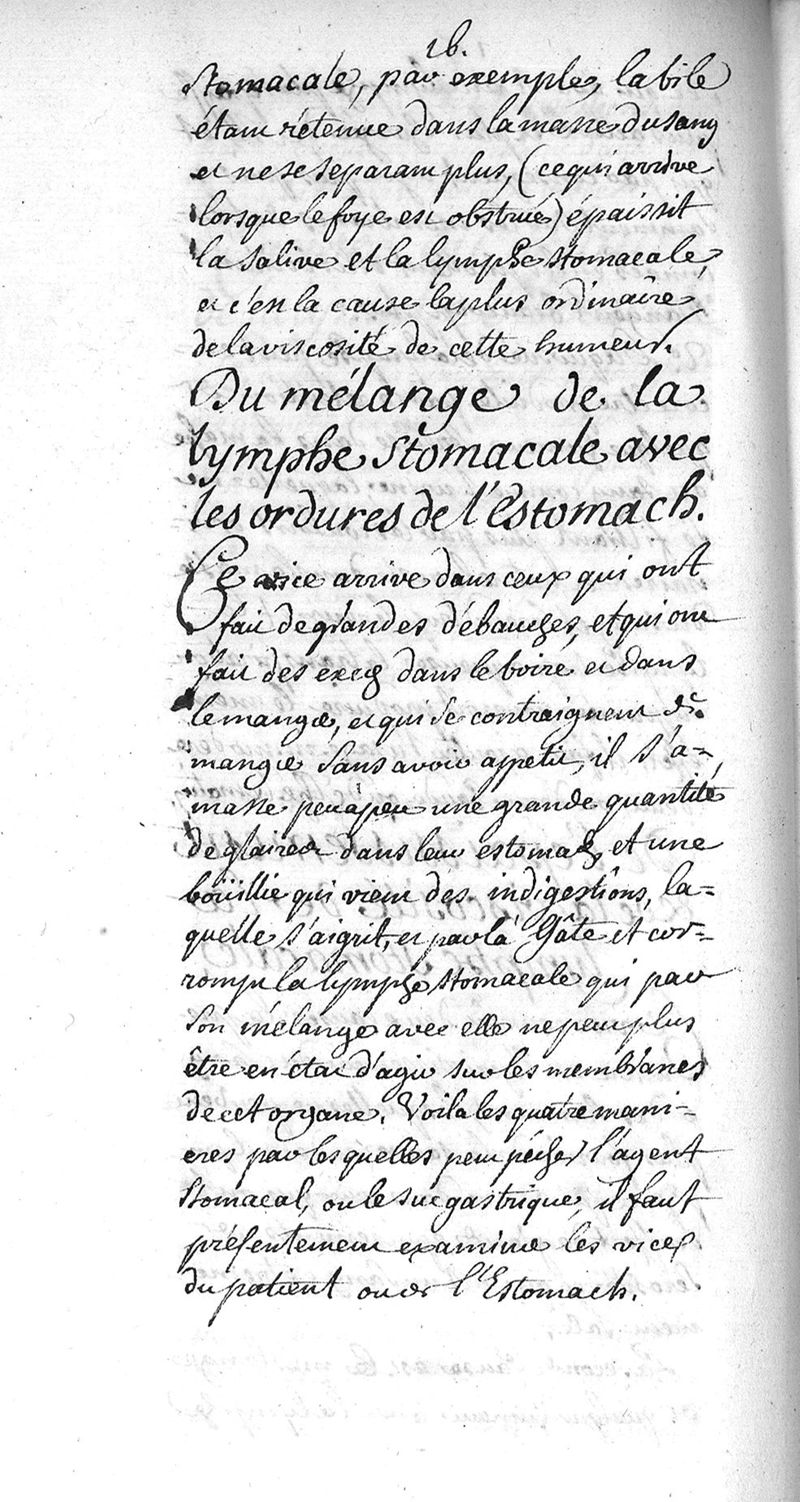 16.
stomacale, par exemple, la bile
étant rétenue dans la masse du sang
et ne se separant plus, (ce qui arrive
lorsque le foye est obstrué) épaissit
la salive et la lymphe stomacale,
et c'est la cause la plus ordinaire
de la viscosité de cette humeur.
Du mélange de la
lymphe stomacale avec
les ordures de l'Estomach.
Ce vice arrive dans ceux qui ont
fait de grandes débauches, et qui ont
fait des excès dans le boire et dans
le manger, et qui se contraignent de
manger sans avoir appetit, il s'a=
masse peu à peu une grande quantité
de glaires dans leur estomac, et une
boüillie qui vient des indigestions, la=
quelle s'aigrit, et par là Gâte et cor=
rompt la lymphe stomacale qui par
son mélange avec elle ne peut plus
être en état d'agir sur les membranes
de cet organe. Voila les quatre mani=
eres par lesquelles peut pécher l'agent
stomacal, ou le suc gastrique, il faut
présentement examiner les vices
du patient ou de l'Estomach.